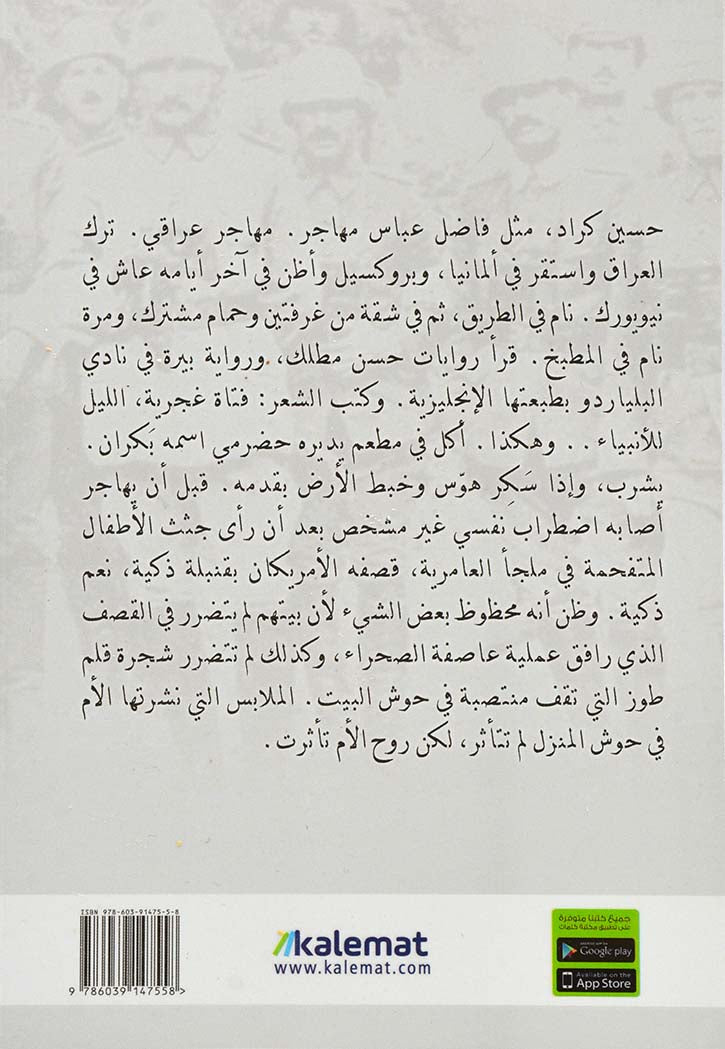 حسين كراد، مثل فاضل عباس مهاجر. مهاجر عراقي. ترك
العراق واستقر في ألمانيا، وبروكسيل وأظن في آخر أيامه عاش في
نيويورك. نام في الطريق، ثم في شقة من غرفتين وحمام مشترك، ومرة
نام في المطبخ. قرأ روايات حسن مطلك، ورواية بيرة في نادي
البلياردو بطبعتها الإنجليزية. وكتب الشعر: فتاة غجرية، الليل
للأنبياء.. وهكذا. أكل في مطعم يديره حضرمي اسمه بَكران.
يشرب، وإذا سَكِر هوّس وخبط الأرض بقدمه. قبل أن يهاجر
أصابه اضطراب نفسي غير مشخص بعد أن رأى جثث الأطفال
المتفحمة في ملجأ العامرية، قصفه الأمريكان بقنبلة ذكية، نعم
ذكية. وظن أنه محظوظ بعض الشيء لأن بيتهم لم يتضرر في القصف
الذي رافق عملية عاصفة الصحراء، وكذلك لم تتضرر شجرة قلم
طوز التي تقف منتصبة في حوش البيت. الملابس التي نشرتها الأم
في حوش المنزل لم تتأثر، لكن روح الأم تأثرت.
ISBN 978-603-91475-5-8
9 786039 147558>
kalemat
www.kalemat.com
جميع كتبنا متوفرة
على تطبيق مكتبة كلمات
ANDROID APP ON
Google play
Available on the
App Store